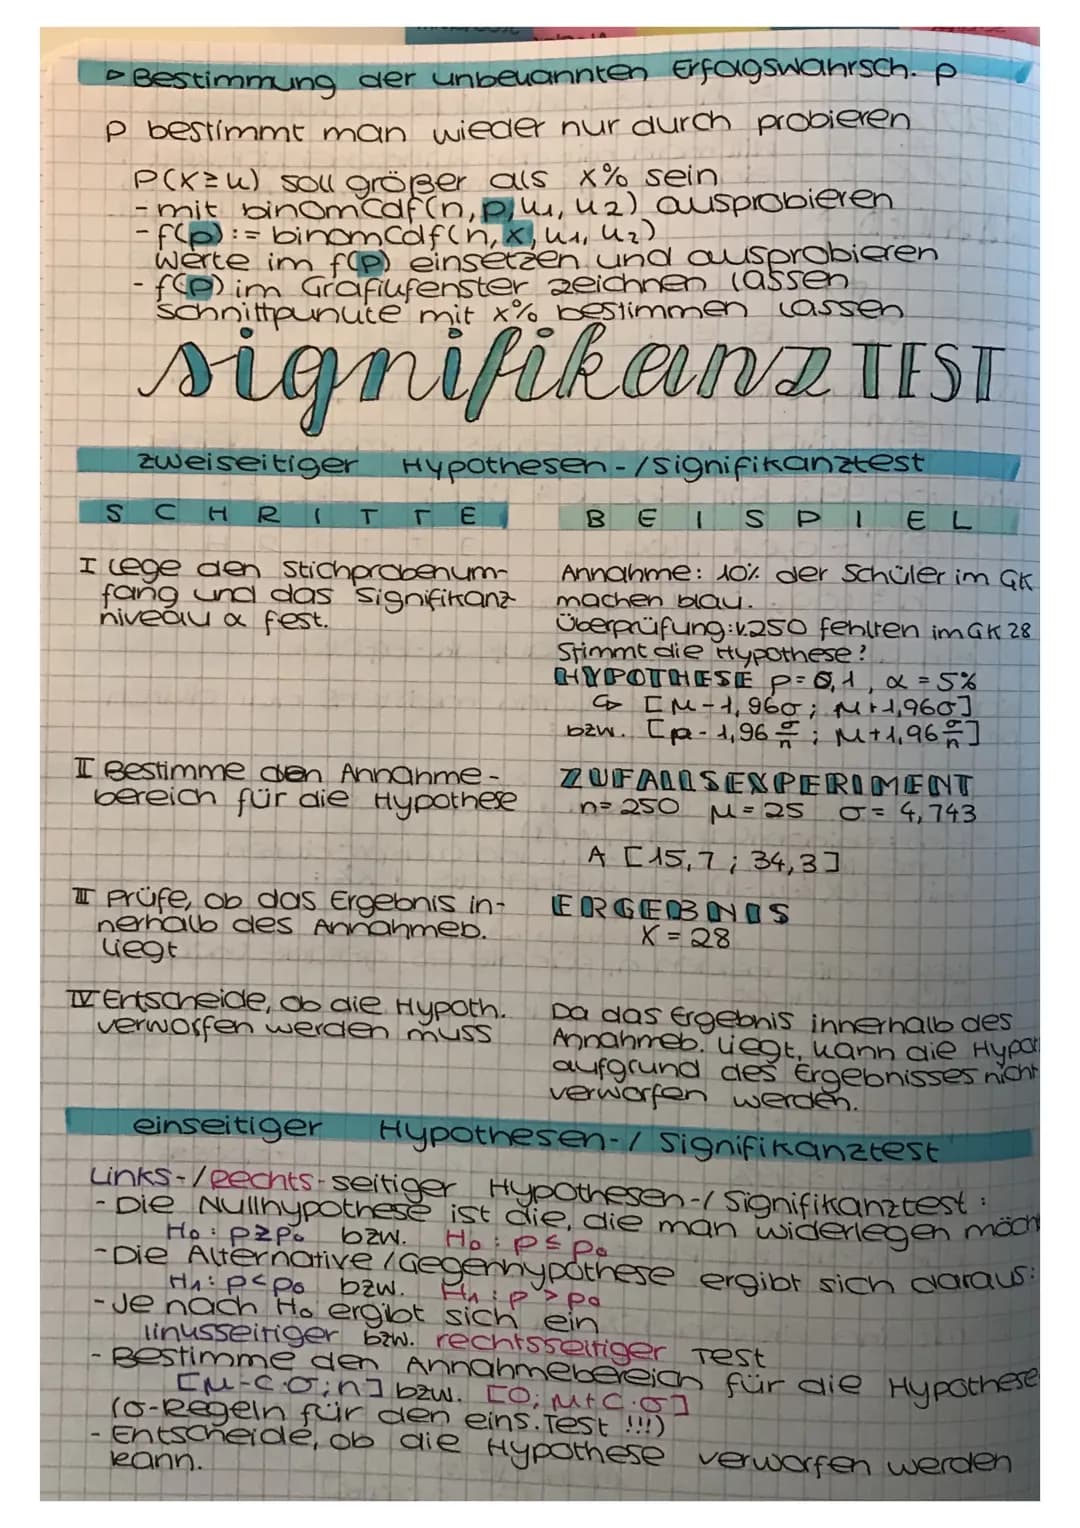 ▷ Bestimmung der unbekannten Erfolgswahrsch. p
p bestimmt man wieder nur durch probieren
P(X≥k) soll größer als x% sein
- mit binomcdf(n, p, k₁, k₂) ausprobieren
- f(p) := binomcdf(n, x, k₁, k₂)
Werte im f(p) einsetzen und ausprobieren
- f(p) im Grafikfenster zeichnen lassen
Schnittpunkte mit x% bestimmen lassen
signifikanz TEST
zweiseitiger Hypothesen-/Signifikanztest
SCHRITTE
I Lege den Stichprobenum-
fang und das Signifikanz-
niveau α fest.
II Bestimme den Annahme-
bereich für die Hypothese
III Prüfe, ob das Ergebnis in-
nerhalb des Annahmeb.
liegt
IV Entscheide, ob die Hypoth.
verworfen werden muss
BEISPIEL
Annahme: 10% der Schüler im GK
machen blau.
Überprüfung: v. 250 fehlten im GK 28
Stimmt die Hypothese?
HYPOTHESE p=0,1, α=5%
↳ [μ-1,96σ; μ+1,96σ]
bzw. [p-1,96 σ/n; μ+1,96 σ/n]
ZUFALLSEXPERIMENT
n=250 μ=25 σ=4,743
A [15,7; 34,3]
ERGEBNIS
X=28
Da das Ergebnis innerhalb des
Annahmeb. liegt, kann die Hypot
aufgrund des Ergebnisses nicht
verworfen werden.
einseitiger Hypothesen-/Signifikanztest
Links-/Rechts-seitiger Hypothesen-/Signifikanztest:
- Die Nullhypothese ist die, die man widerlegen möch
H₀: p≥p₀ bzw. H₀: p≤p₀
- Die Alternative/Gegenhypothese ergibt sich daraus:
H₁: p<p₀ bzw. H₁: p>p₀
- Je nach H₀ ergibt sich ein
linksseitiger bzw. rechtsseitiger Test
- Bestimme den Annahmebereich für die Hypothese
[μ-c·σ; n] bzw. [0; μ+c·σ]
(σ-Regeln für den eins. Test !!!)
- Entscheide, ob die Hypothese verworfen werden
kann.